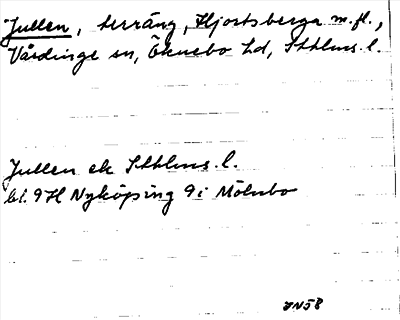 Jullen, terräng, Hjortsberga m.fl.,
Vårdinge sn, Öknebo hd, Sthlms. l.
Jullen ek Sthlms. l.
bl. 9H Nyköping 9i Mölnbo
JN58